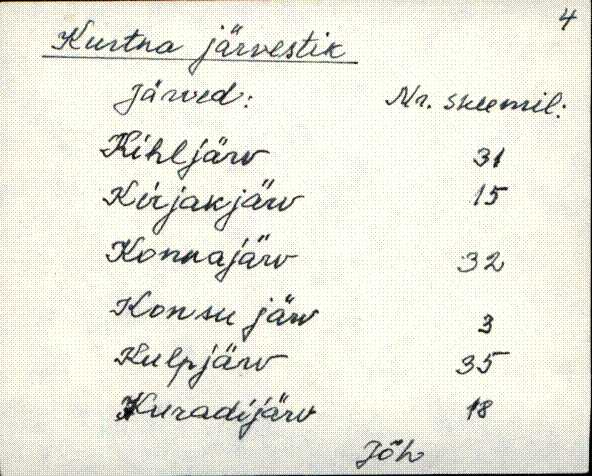 4
Kurtna järvestik
Järved: Nr. skeemil:
Kihljärv 31
Kirjakjärv 15
Konnajärv 32
Konsu järv 3
Kulpjärv 35
Kuradijärv 18
Jõh